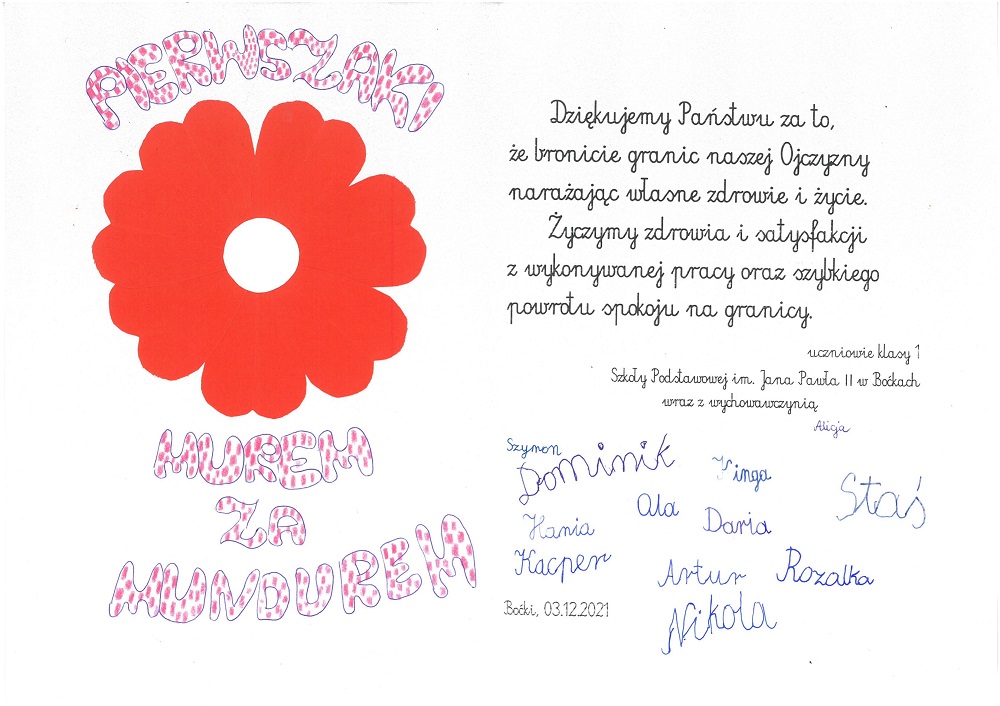 PIERWSZAKI
MUREM
ZA
MUNDUREM
Dziękujemy Państwu za to,
że bronicie granic naszej Ojczyzny
narażając własne zdrowie i życie.
Życzymy zdrowia i satysfakcji
z wykonywanej pracy oraz szybkiego
powrotu spokoju na granicy.
uczniowie klasy 1
Szkoły Podstawowej im. Jana Pawła II w Boćkach
wraz z wychowawczynią
Alicja
Szymon
Dominik
Kinga
Staś
Ala
Hania
Daria
Kacper
Artur
Rozalka
Nikola
Boćki, 03.12.2021